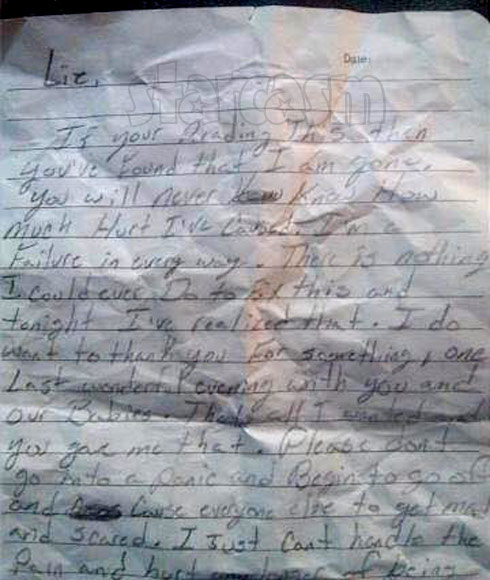 Date:
Liz,
starcasm
If your Reading This than
you've found that I am gone.
you will never know How
much Hurt I've Caused. I'm a
Failure in every way. There is nothing
I could ever Do to fix this and
tonight I've realized that. I do
want to thank you For something, one
Last wonderful evening with you and
our Babies. That's all I wanted and
you gave me that. Please don't
go into a panic and Begin to go off
and Cause everyone else to get mad
and scared. I Just Cant handle the
Pain and hurt any longer of being